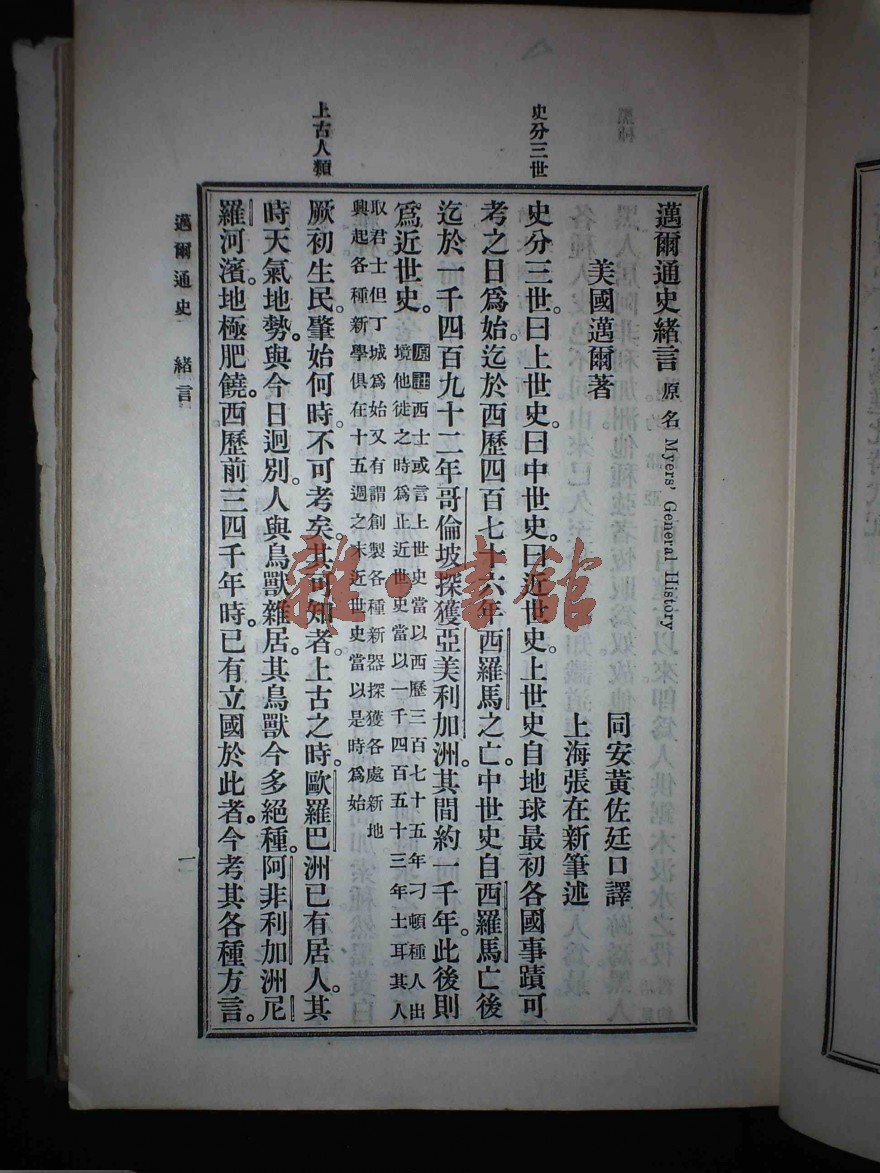 史分三世
上古人類
邁爾通史緒言 原名 Myers' General History
同安黃佐廷口譯
美國邁爾著
上海張在新筆述
史分三世。曰上世史。曰中世史。曰近世史。上世史自地球最初各國事蹟可
考之日爲始。迄於西歷四百七十六年西羅馬之亡。中世史自西羅馬亡後
迄於一千四百九十二年哥倫坡探獲亞美利加洲。其間約一千年。此後則
爲近世史。原註西士或言上世史當以西歷三百七十五年刁頓種人出
境他徙之時爲止近世史當以一千四百五十三年土耳其人
取君士但丁城爲始又有謂創製各種新器探獲各處新地
興起各種新學俱在十五週之末近世史當以是時爲始
厥初生民。肇始何時。不可考矣。其可知者。上古之時。歐羅巴洲已有居人。其
時天氣地勢。與今日迥別。人與鳥獸雜居。其鳥獸今多絕種。阿非利加洲尼
羅河濱。地極肥饒。西歷前三四千年時。已有立國於此者。今考其各種方言。
邁爾通史 緒言
一
雜·書館